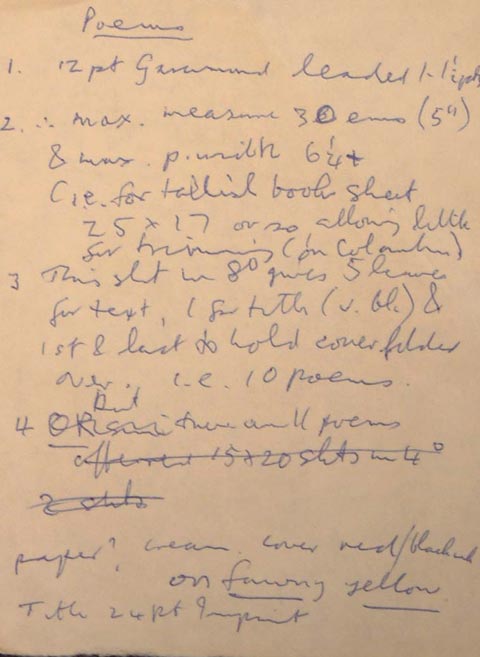 Poems
1. 12pt Garamond leaded 1-1½pts
2. ∴ max. measure 30 ems (5")
& max. p. width 6¼+
(i.e. for tallish book sheet
25 x 17 or so allowing little
for trimming (on Columbian)
3 This sht in 8° gives 5 leaves
for text, 1 for title (v. bl.) &
1st & last to hold cover folder
over. i.e. 10 poems.
But
4 OR since there are 11 poems
15 x 20 shts in 4°
2 shts
paper? cream. cover red/black ink
on fawny yellow
Title 24pt Imprint